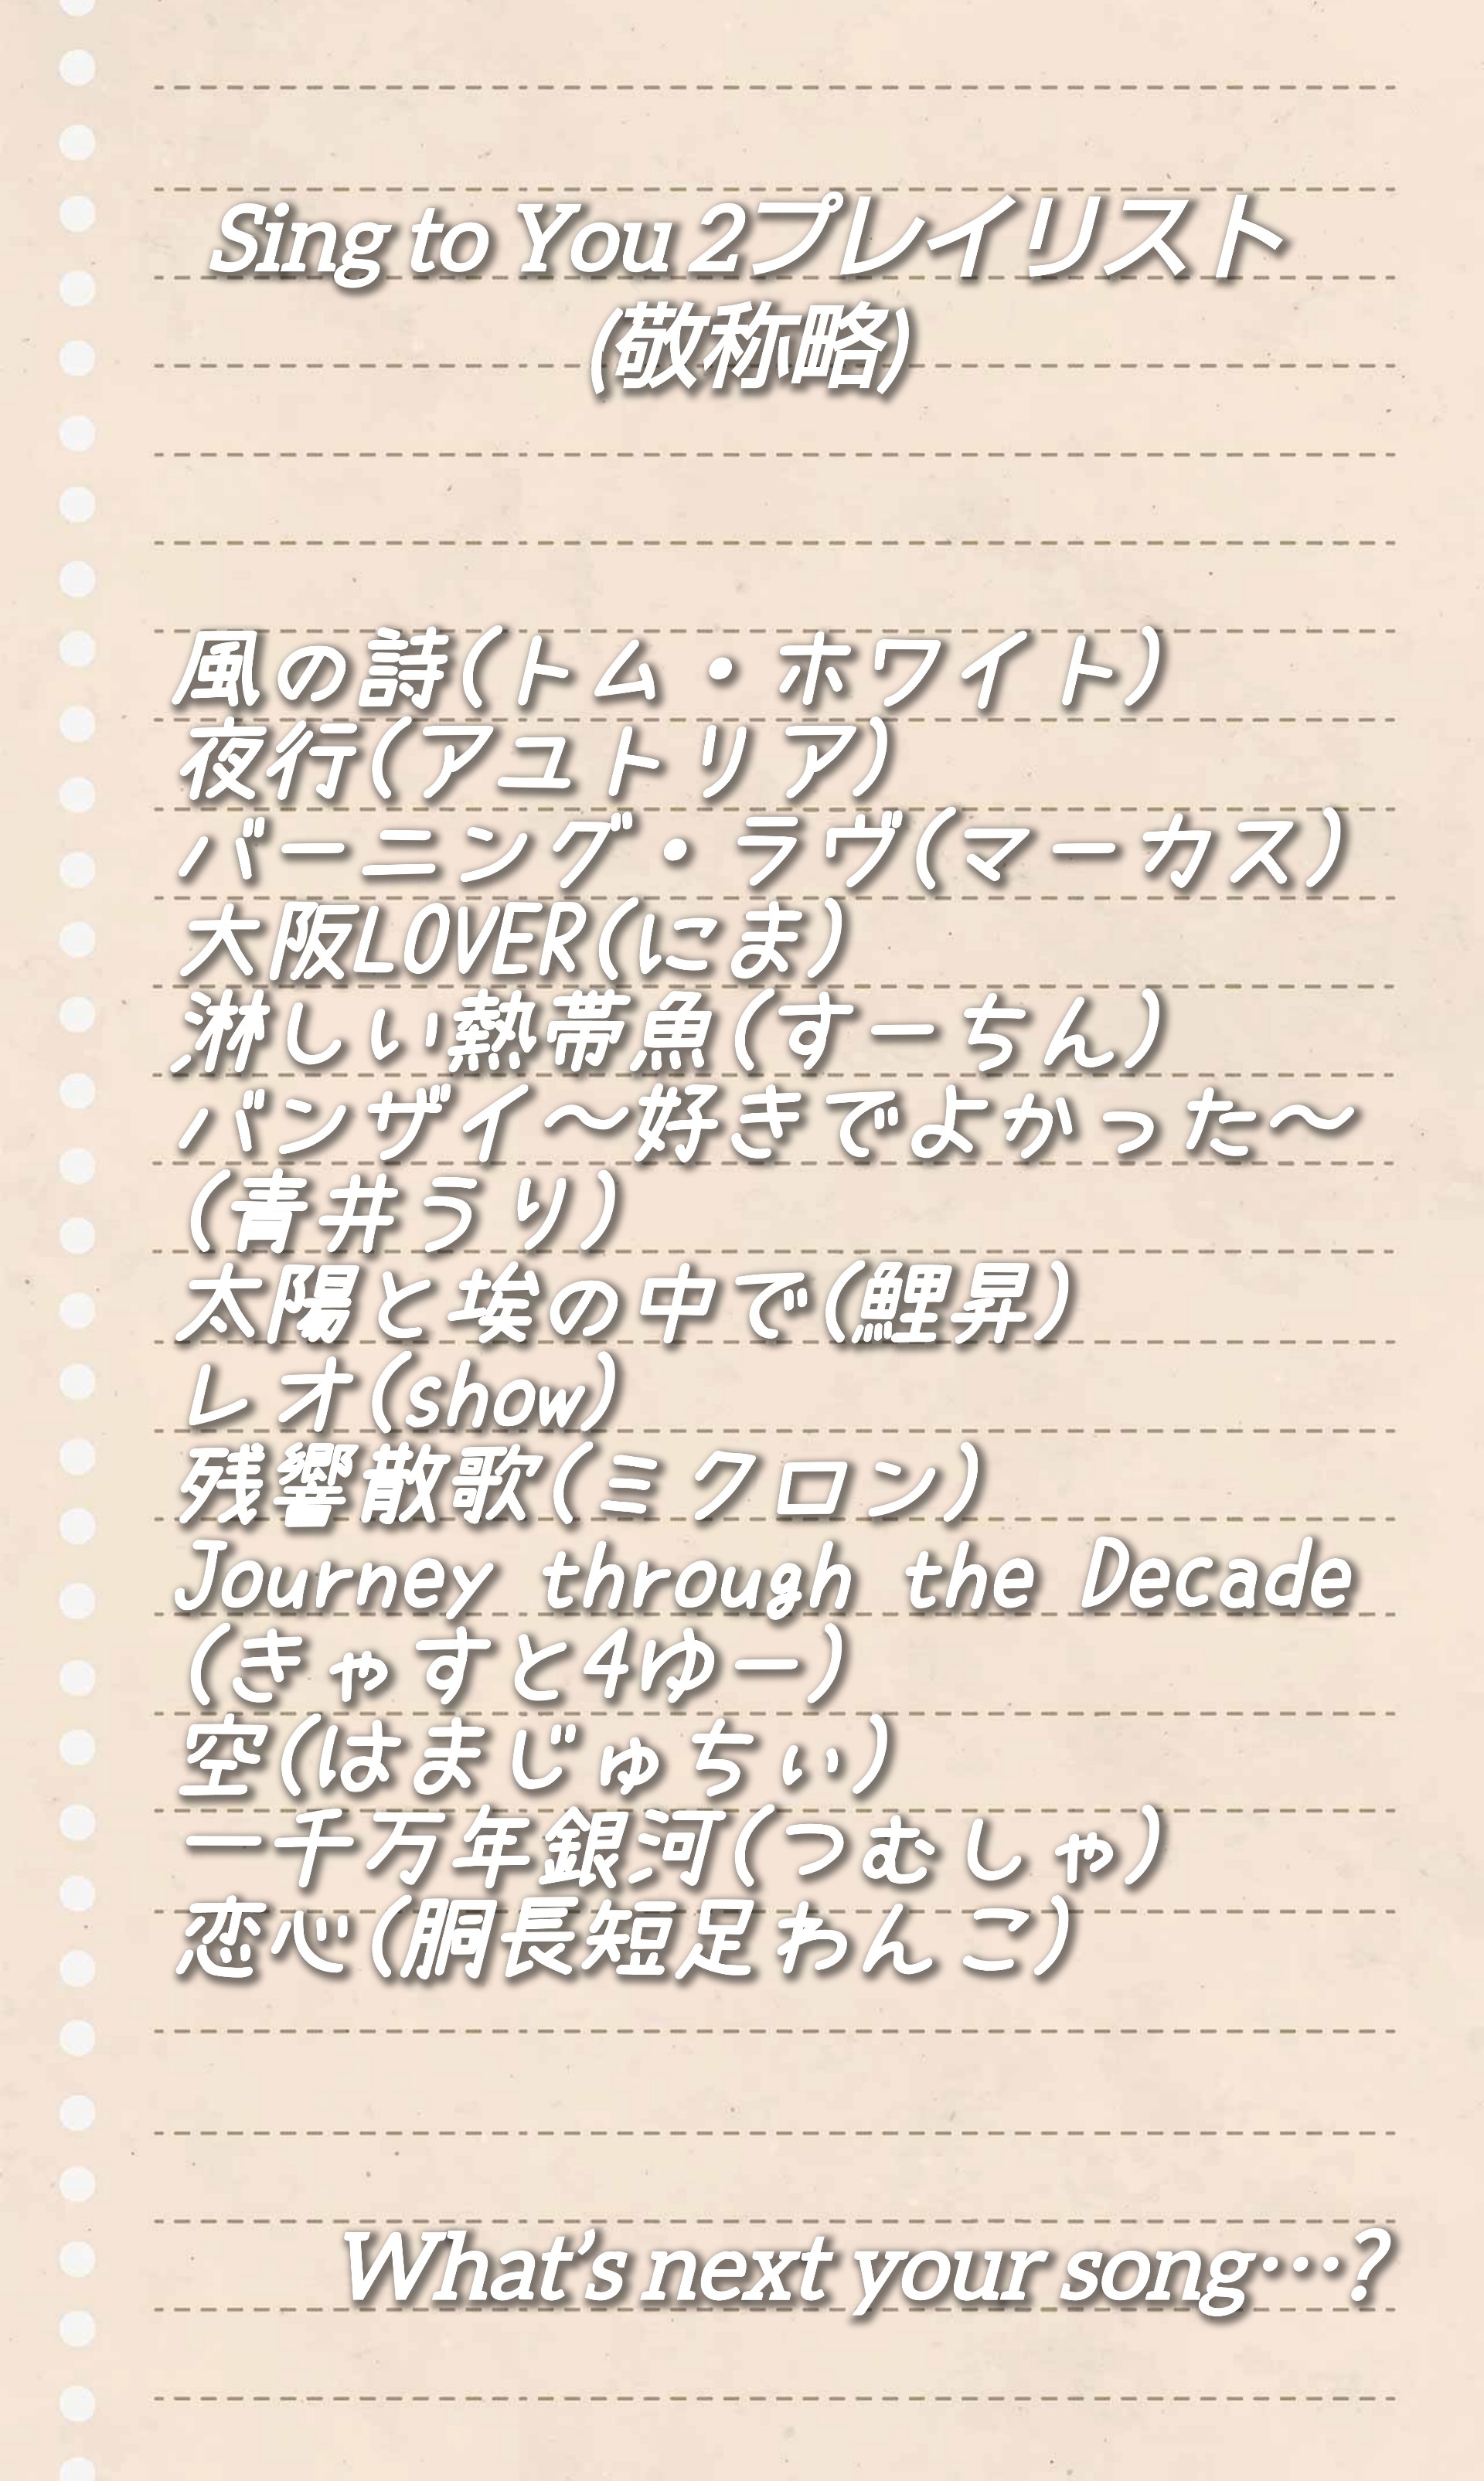 Sing to You 2プレイリスト
(敬称略)
風の詩(トム・ホワイト)
夜行(アユトリア)
バーニング・ラヴ(マーカス)
大阪LOVER(にま)
淋しい熱帯魚(すーちん)
バンザイ～好きでよかった～
(青井うり)
太陽と埃の中で(鯉昇)
レオ(show)
残響散歌(ミクロン)
Journey through the Decade
(きゃすと4ゆー)
空(はまじゅちぃ)
一千万年銀河(つむしゃ)
恋心(胴長短足わんこ)
What's next your song…?